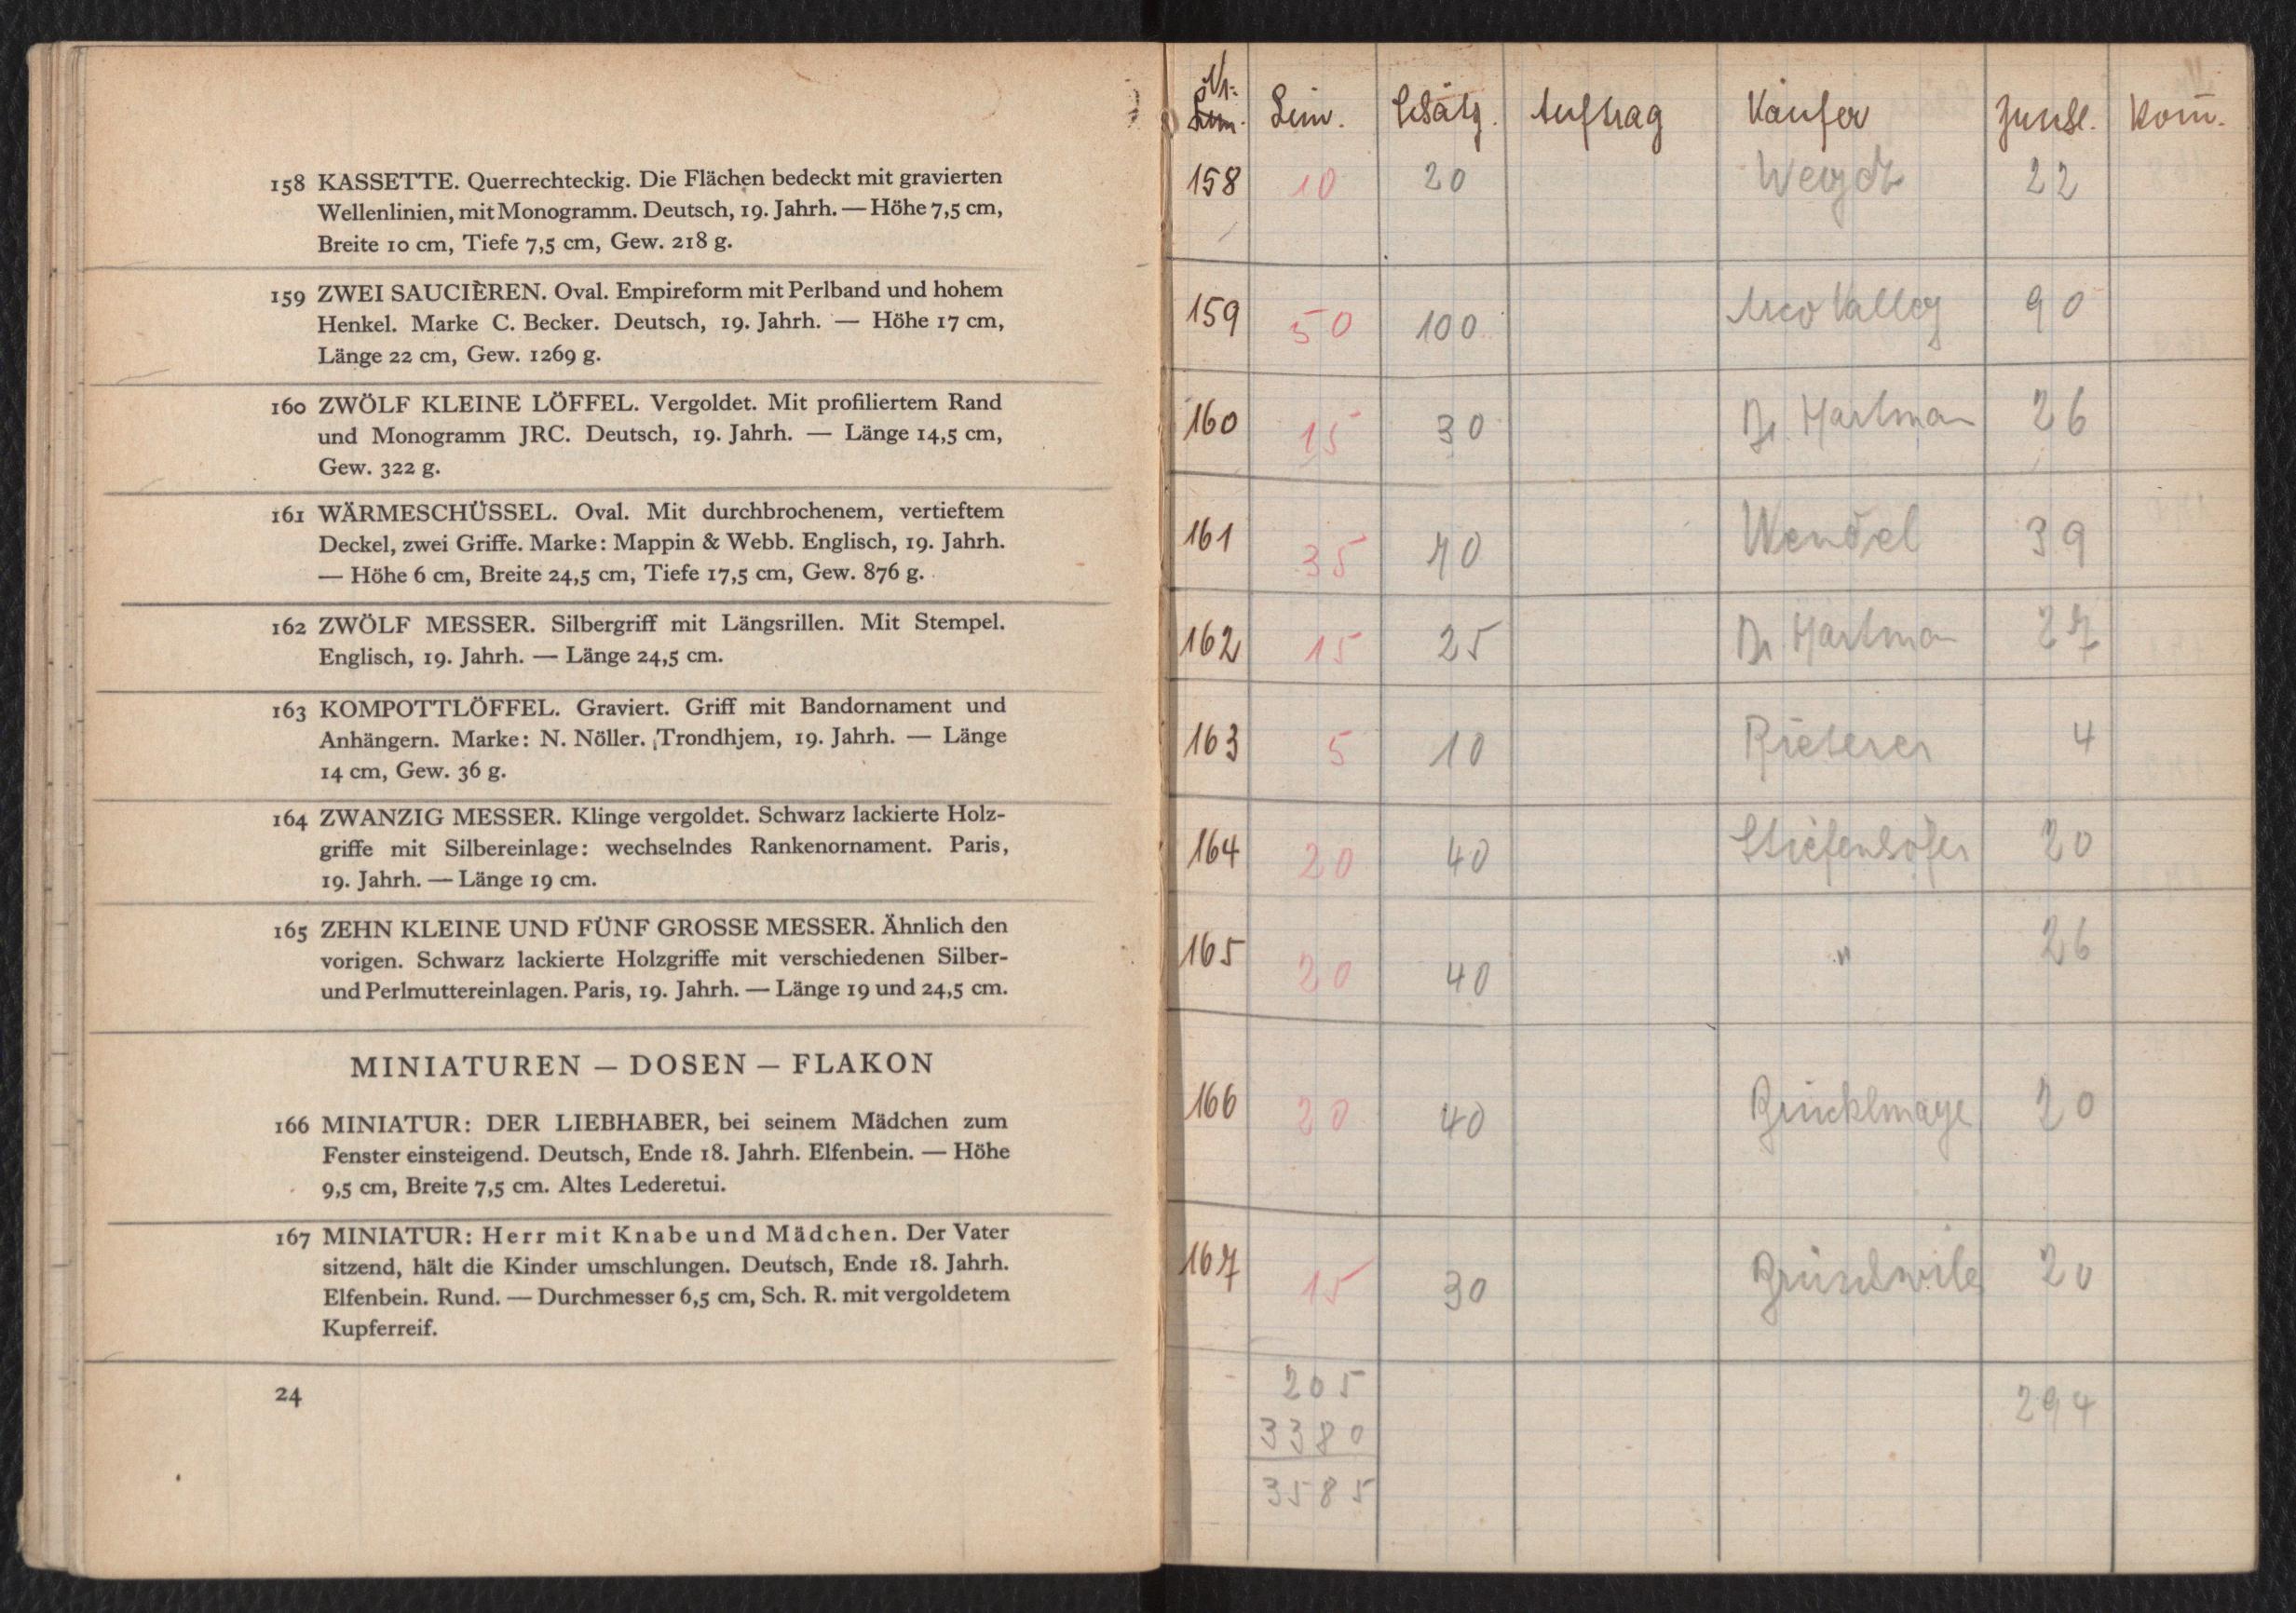 158 KASSETTE. Querrechteckig. Die Flächen bedeckt mit gravierten
Wellenlinien, mit Monogramm. Deutsch, 19. Jahrh. — Höhe 7,5 cm,
Breite 10 cm, Tiefe 7,5 cm, Gew. 218 g.
159 ZWEI SAUCIÈREN. Oval. Empireform mit Perlband und hohem
Henkel. Marke C. Becker. Deutsch, 19. Jahrh. — Höhe 17 cm,
Länge 22 cm, Gew. 1269 g.
160 ZWÖLF KLEINE LÖFFEL. Vergoldet. Mit profiliertem Rand
und Monogramm JRC. Deutsch, 19. Jahrh. — Länge 14,5 cm,
Gew. 322 g.
161 WÄRMESCHÜSSEL. Oval. Mit durchbrochenem, vertieftem
Deckel, zwei Griffe. Marke: Mappin & Webb. Englisch, 19. Jahrh.
— Höhe 6 cm, Breite 24,5 cm, Tiefe 17,5 cm, Gew. 876 g.
162 ZWÖLF MESSER. Silbergriff mit Längsrillen. Mit Stempel.
Englisch, 19. Jahrh. — Länge 24,5 cm.
163 KOMPOTTLÖFFEL. Graviert. Griff mit Bandornament und
Anhängern. Marke: N. Nöller. Trondhjem, 19. Jahrh. — Länge
14 cm, Gew. 36 g.
164 ZWANZIG MESSER. Klinge vergoldet. Schwarz lackierte Holz-
griffe mit Silbereinlage: wechselndes Rankenornament. Paris,
19. Jahrh. — Länge 19 cm.
165 ZEHN KLEINE UND FÜNF GROSSE MESSER. Ähnlich den
vorigen. Schwarz lackierte Holzgriffe mit verschiedenen Silber-
und Perlmuttereinlagen. Paris, 19. Jahrh. — Länge 19 und 24,5 cm.
MINIATUREN – DOSEN – FLAKON
166 MINIATUR: DER LIEBHABER, bei seinem Mädchen zum
Fenster einsteigend. Deutsch, Ende 18. Jahrh. Elfenbein. — Höhe
9,5 cm, Breite 7,5 cm. Altes Lederetui.
167 MINIATUR: Herr mit Knabe und Mädchen. Der Vater
sitzend, hält die Kinder umschlungen. Deutsch, Ende 18. Jahrh.
Elfenbein. Rund. — Durchmesser 6,5 cm, Sch. R. mit vergoldetem
Kupferreif.
24
Nr. Lim. Schätz. Auftrag Käufer Zuschl. Kom̄.
158 10 20 22
159 50 100 Arco Valley 90
160 15 30 Dr. Hartman 26
161 35 70 Wendel 39
162 15 25 Dr Hartman 27
163 5 10 Rieterer 4
164 20 40 Stiefenhofer 20
165 20 40 " 26
166 20 40 Brücklmaye 20
167 15 30 20
205 294
3380
3585